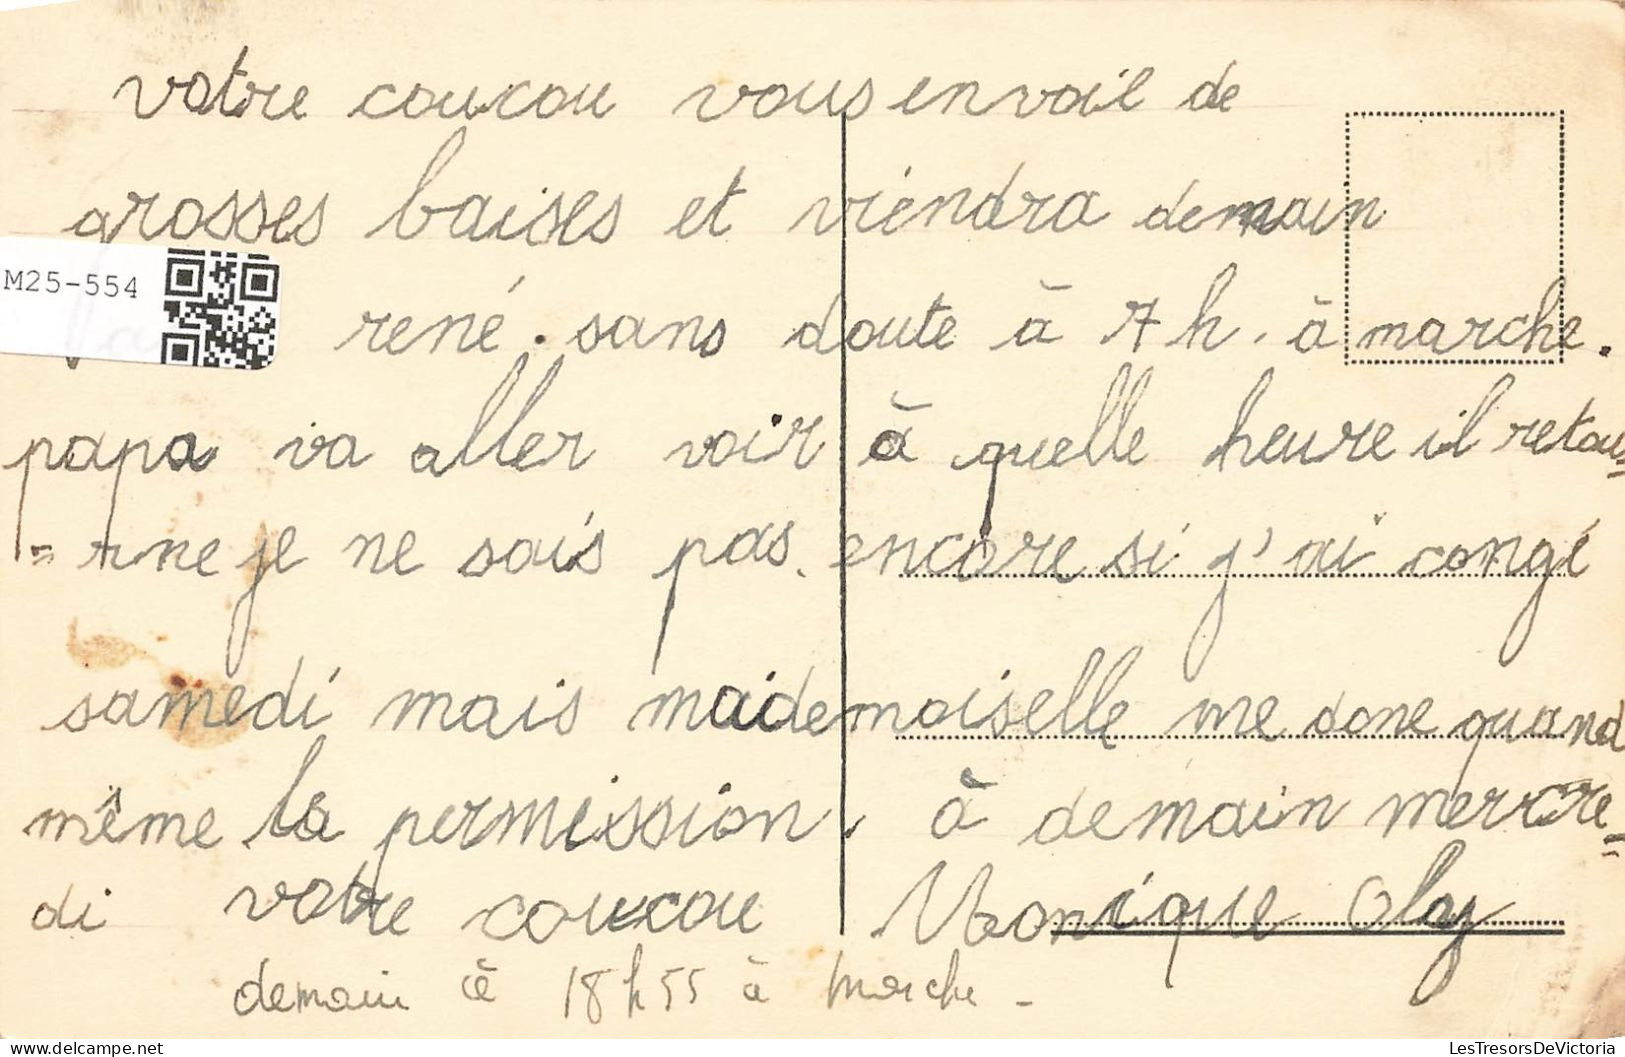 votre coucou vous envoil de
grosses baises et viendra demain
M25-554
rené. sans doute à 7 h. à marche.
papa va aller voir à quelle heure il retou=
=rne je ne sais pas. encore si j'ai congé
samedi mais maidemoiselle me done quand
même la permission. à demain mercre=
di votre coucou Monique
demain à 18 h 55 à Marche -
LesTresorsDeVictoria